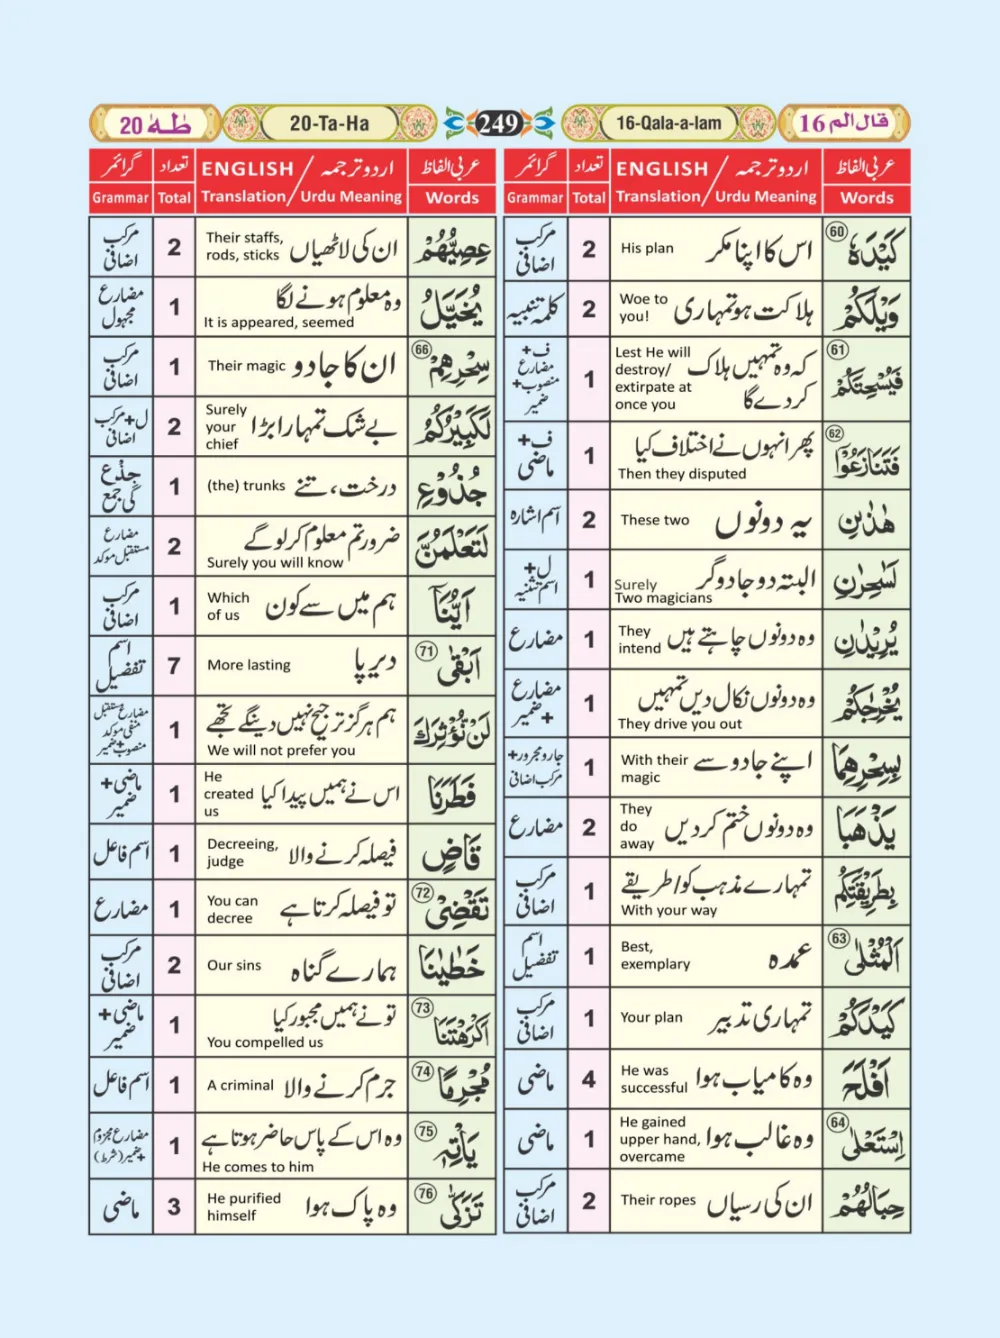 قال الم 16
16-Qala-a-lam
249
20-Ta-Ha
طٰهٰ 20
عربی الفاظ اردو ترجمہ / ENGLISH تعداد گرائمر
Words Urdu Meaning / Translation Total Grammar
كَيْدَهٗ 60 اس کا اپنا مکر His plan 2 مرکب اضافی
وَيْلَكُمْ ہلاکت ہو تمہاری Woe to you! 2 کلمہ تنبیہ
فَيُسْحِتَكُمْ 61 کہ وہ تمہیں ہلاک کر دے گا Lest He will destroy/ extirpate at once you 1 ف+ مضارع منصوب+ ضمیر
فَتَنَازَعُوْٓا 62 پھر انہوں نے اختلاف کیا Then they disputed 1 ف+ ماضی
هٰذٰنِ یہ دونوں These two 2 اسم اشارہ
لَسٰحِرٰنِ البتہ دو جادوگر Surely Two magicians 1 ل+ اسم تثنیہ
يُرِيْدٰنِ وہ دونوں چاہتے ہیں They intend 1 مضارع
يُخْرِجٰكُمْ وہ دونوں نکال دیں تمہیں They drive you out 1 مضارع +ضمیر
بِسِحْرِهِمَا اپنے جادو سے With their magic 1 جار و مجرور+ مرکب اضافی
يَذْهَبَا وہ دونوں ختم کر دیں They do away 2 مضارع
بِطَرِيْقَتِكُمْ تمہارے مذہب کو/طریقے With your way 1 مرکب اضافی
الْمُثْلٰى 63 عمدہ Best, exemplary 1 اسم تفضیل
كَيْدَكُمْ تمہاری تدبیر Your plan 1 مرکب اضافی
اَفْلَحَ وہ کامیاب ہوا He was successful 4 ماضی
اسْتَعْلٰى 64 وہ غالب ہوا He gained upper hand, overcame 1 ماضی
حِبَالُهُمْ ان کی رسیاں Their ropes 2 مرکب اضافی
عربی الفاظ اردو ترجمہ / ENGLISH تعداد گرائمر
Words Urdu Meaning / Translation Total Grammar
عِصِيُّهُمْ ان کی لاٹھیاں Their staffs, rods, sticks 2 مرکب اضافی
يُخَيَّلُ وہ معلوم ہونے لگا It is appeared, seemed 1 مضارع مجہول
سِحْرِهِمْ 66 ان کا جادو Their magic 1 مرکب اضافی
لَكَبِيْرُكُمْ بے شک تمہارا بڑا Surely your chief 2 ل+ مرکب اضافی
جُذُوْعِ درخت، تنے (the) trunks 1 جِذْع کی جمع
لَتَعْلَمُنَّ ضرور تم معلوم کر لو گے Surely you will know 2 مضارع مستقبل موکد
اَيُّنَآ ہم میں سے کون Which of us 1 مرکب اضافی
اَبْقٰى 71 دیر پا More lasting 7 اسم تفضیل
لَنْ نُّؤْثِرَكَ ہم ہرگز ترجیح نہیں دینگے تجھے We will not prefer you 1 مضارع مستقبل منفی موکد منصوب+ضمیر
فَطَرَنَا اس نے ہمیں پیدا کیا He created us 1 ماضی+ ضمیر
قَاضٍ فیصلہ کرنے والا Decreeing, judge 1 اسم فاعل
تَقْضِيْ 72 تو فیصلہ کرتا ہے You can decree 1 مضارع
خَطٰيٰنَا ہمارے گناہ Our sins 2 مرکب اضافی
اَكْرَهْتَنَا 73 تو نے ہمیں مجبور کیا You compelled us 1 ماضی+ ضمیر
مُجْرِمًا 74 جرم کرنے والا A criminal 1 اسم فاعل
يَاْتِهٖ 75 وہ اس کے پاس حاضر ہوتا ہے He comes to him 1 مضارع مجزوم +ضمیر (شرط)
تَزَكّٰى 76 وہ پاک ہوا He purified himself 3 ماضی